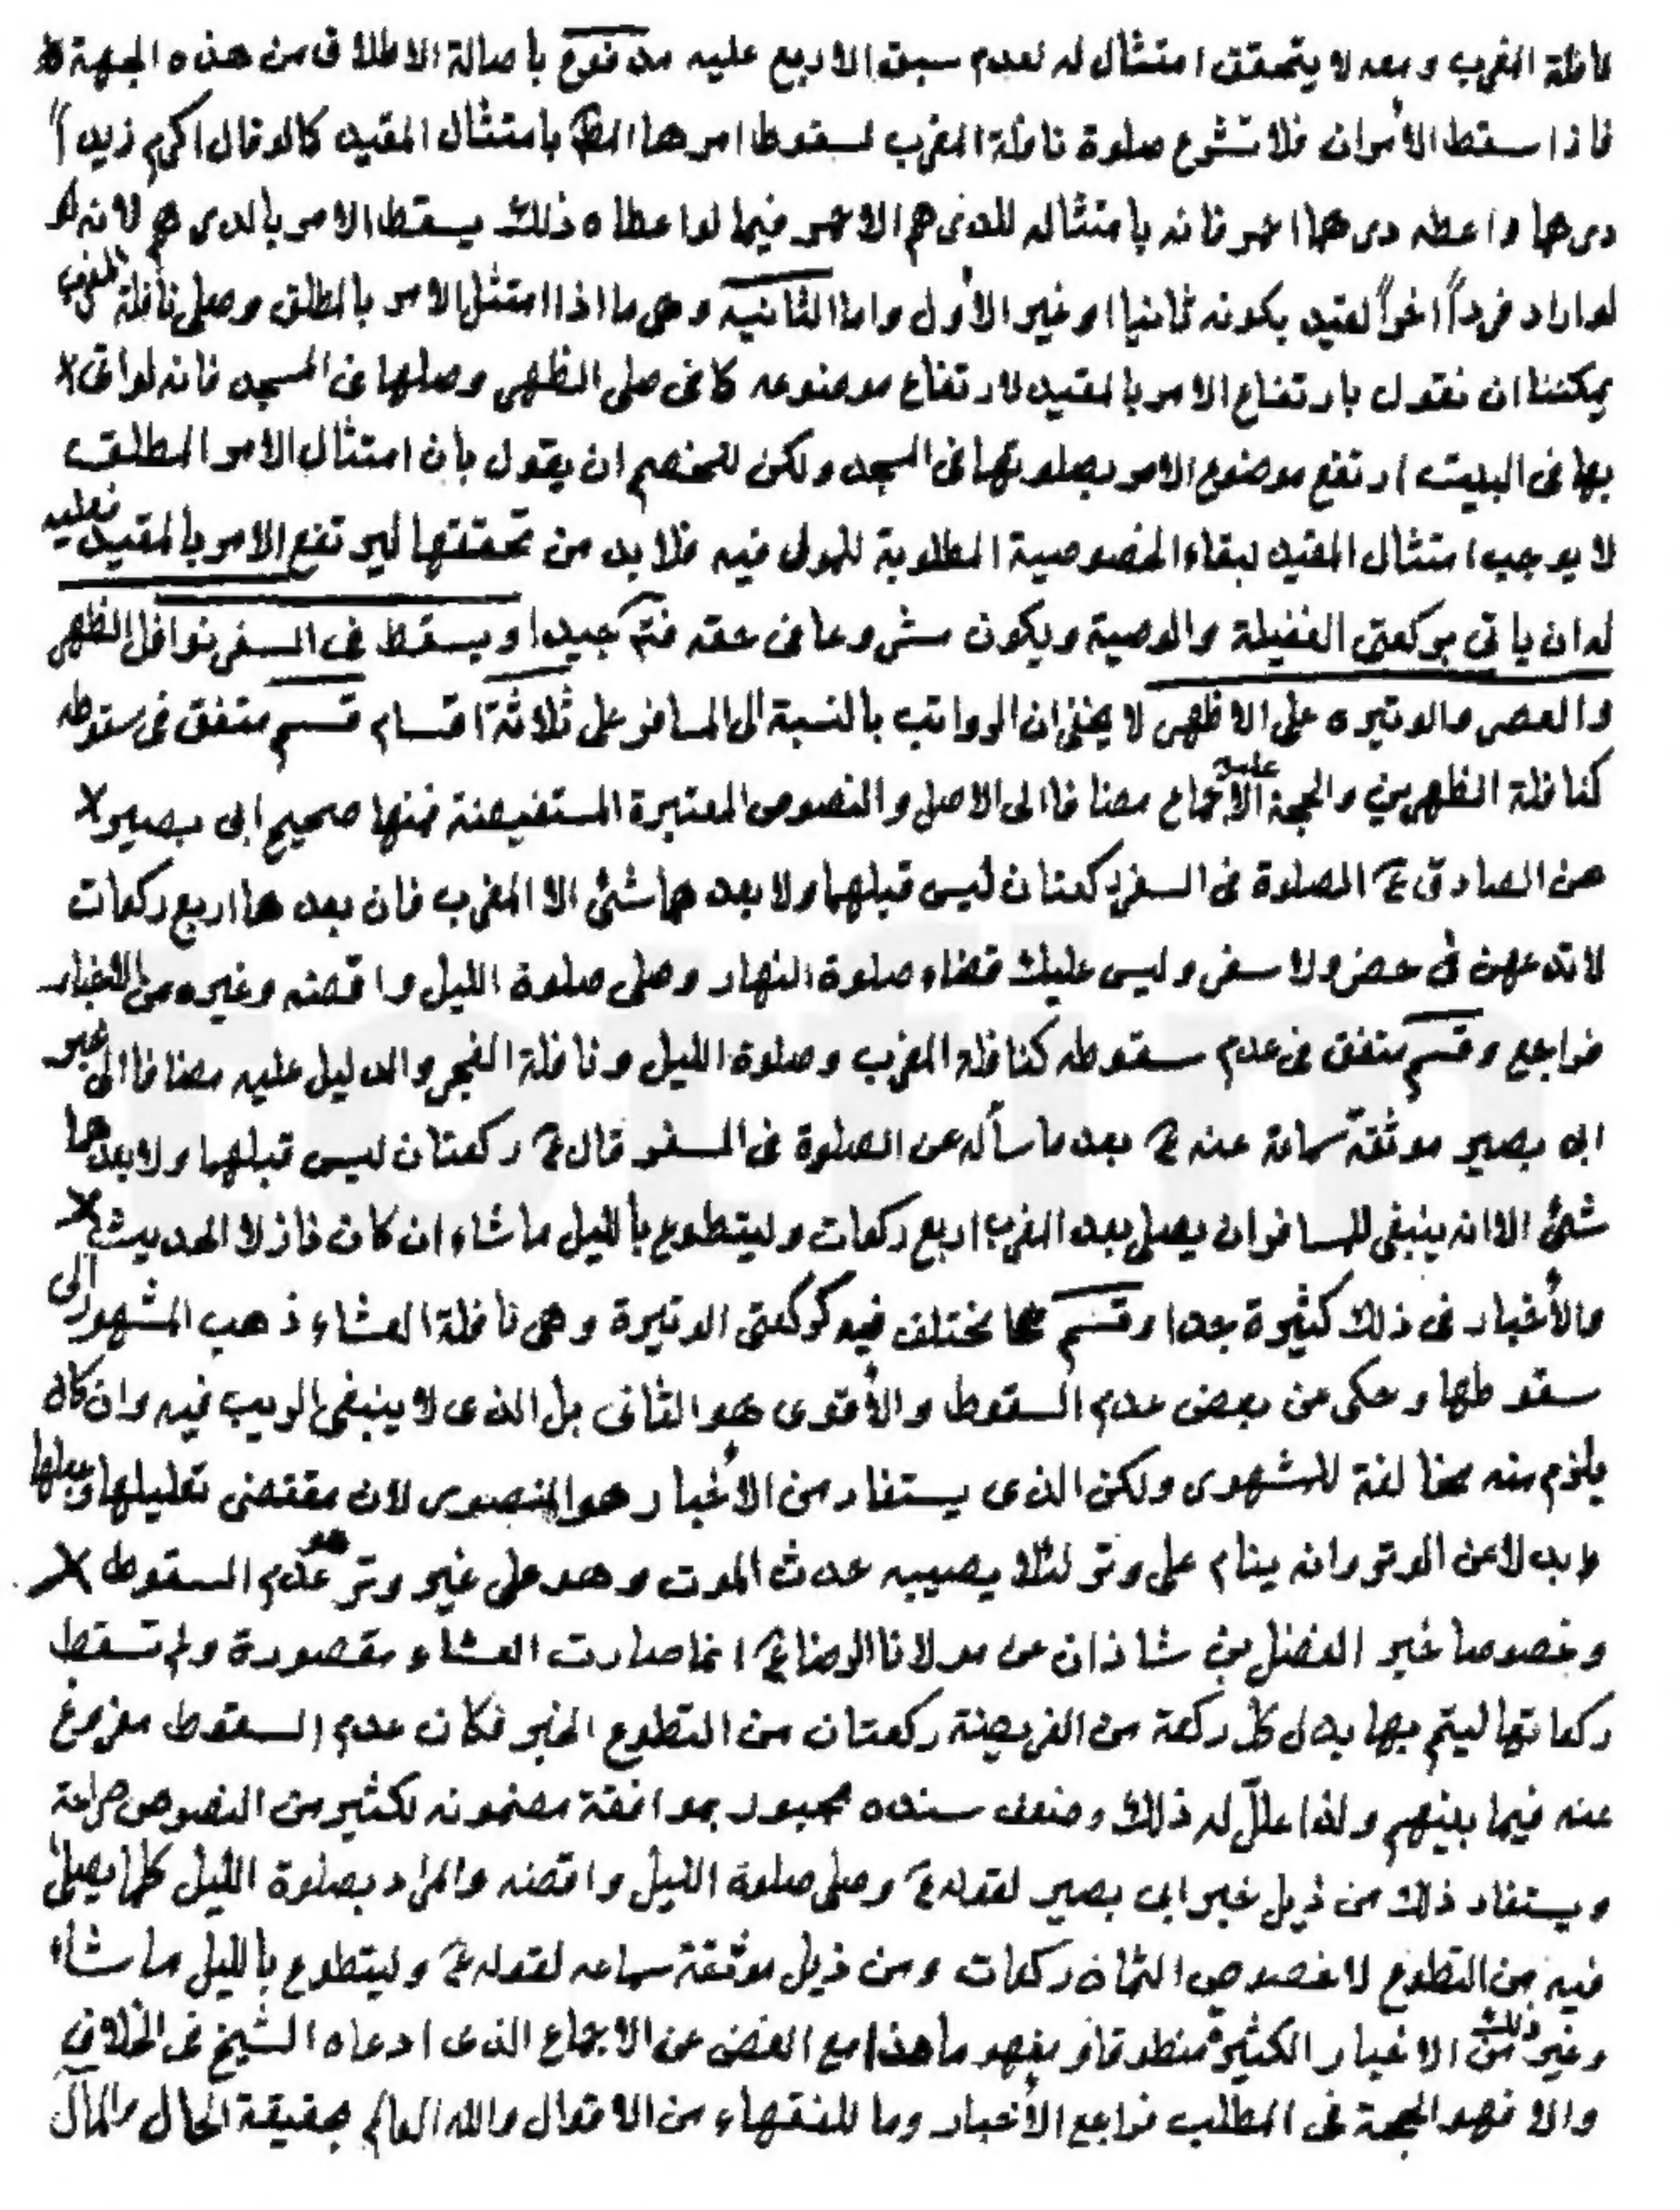 نافلة المغرب ومعه لا يتحقق امتثال له لعدم سبق الاربع عليه مدفوع باصالة الاطلاق من هذه الجهة
فاذا سقط الأمران فلا تشرع صلوة نافلة المغرب لسقوط امرها المط بامتثال المقيد كما لو قال اكرم زيداً
درهما واعطه درهما اخر فانه بامتثاله للدرهم الاخر فيما لو اعطاه ذلك يسقط الامر بالدرهم لانه
لو اراد فرداً اخراً لقيد بكونه ثانيا او غير الأول واما الثانيه وهى ما اذا امتثل الامر بالمطلق وصلى نافلة المغرب
يمكننا ان نقول بارتفاع الامر بالمقيد لارتفاع موضوعه كما فى صلى الظهر وصلها فى المسجد فانه لو اتى
بها فى البيت ارتفع موضوع الامر بصلوتها فى المسجد ولكن للخصم ان يقول بان امتثال الامر المطلق
لا يوجب امتثال المقيد لبقاء الخصوصية المطلوبة للمولى فيه فلا بد من تحققها ليرتفع الامر بالمقيد فعليه
له ان ياتى بركعتى الغفيلة والوصية ويكون مشروعا فى حقه فتم جيدا ويسقط فى السفر نوافل الظهر
والعصر والوتيره على الاظهر لا يخفى ان الرواتب بالنسبة الى المسافر على ثلاثة اقسام قسم متفق فى سقوطه
كنافلة الظهرين والحجة عليه الاجماع مضافا الى الاصل والنصوص المعتبرة المستفيضة فمنها صحيح ابى بصير
عن الصادق ع الصلوة فى السفر ركعتان ليس قبلهما ولا بعدهما شئ الا المغرب فان بعدها اربع ركعات
لا تدعهن فى حضر ولا سفر وليس عليك قضاء صلوة النهار وصلى صلوة الليل واقضه وغيره من الاخبار
فراجع وقسم متفق فى عدم سقوطه كنافلة المغرب وصلوة الليل ونافلة الفجر والدليل عليه مضافا الى خبر
ابى بصير موثقة سماعة عنه ع بعد ما سأله عن الصلوة فى السفر قال ع ركعتان ليس قبلهما ولا بعدهما
شئ الا انه ينبغى للمسافر ان يصلى بعد المغرب اربع ركعات وليتطوع بالليل ما شاء ان كان نازلا الحديث
والأخبار فى ذلك كثيرة جدا وقسم مما يختلف فيه كركعتى الوتيرة وهى نافلة العشاء ذهب المشهور الى
سقوطها وحكى عن بعض عدم السقوط والأقوى هو الثانى بل الذى لا ينبغى الريب فيه وان كان
يلزم منه مخالفة للمشهور ولكن الذى يستفاد من الأخبار هو المنصور لان مقتضى تعليلها وجعلها
بدلا عن الوتر وانه ينام على وتر لئلا يصيبه حدث الموت وهو على غير وتر هو عدم السقوط
وخصوصا خبر الفضل بن شاذان عن مولانا الرضا ع انما صارت العشاء مقصورة ولم تسقط
ركعاتها ليتم بها بدل كل ركعة من الفريضة ركعتان من التطوع الخبر فكان عدم السقوط مفروغ
عنه فيما بينهم ولذا علل له ذلك وضعف سنده مجبور بموافقة مضمونه لكثير من النصوص صراحة
ويستفاد ذلك من ذيل خبر ابى بصير لقوله ع وصلى صلوة الليل واقضه والمراد بصلوة الليل كلما يصلى
فيه من التطوع لا خصوص الثمان ركعات ومن ذيل موثقة سماعه لقوله ع وليتطوع بالليل ما شاء
وغير ذلك من الاخبار الكثيرة منطوقا ومفهوما هذا مع الغض عن الاجماع الذى ادعاه الشيخ فى الخلاف
والا فهو الحجة فى المطلب فراجع الأخبار وما للفقهاء من الاقوال والله العالم بحقيقة الحال والمآل